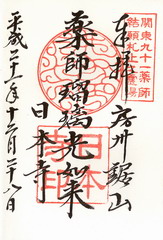 關東九十一薬師
結願札止霊場
奉拝 房州鋸山
薬師瑠璃光如来
日本寺
平成二十一年十二月二十八日